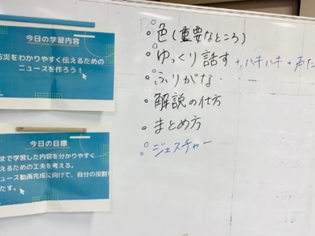 今日の学習内容
災をわかりやすく伝えるための
ニュースを作ろう！
今日の目標
まで学習した内容を分かりやすく
えるための工夫を考える。
ュース動画完成に向けて、自分の役割
たす。
・色(重要なところ)
・ゆっくり話す ・ハキハキ
・ふりがな
・解説の仕方
・まとめ方
・ジェスチャー